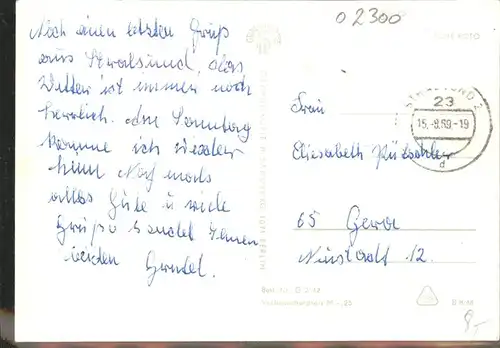 02300
Noch einen letzten Gruß
aus Stralsund, das
Wetter ist immer noch
herrlich. Am Sonntag
komme ich wieder
heim Noch mals
alles Gute u viele
Grüße sendet Ihnen
beiden Gretel.
STRALSUND
23
15.-8.69-19
d
Frau
Elisabeth
65 Gera
Neustadt 12.